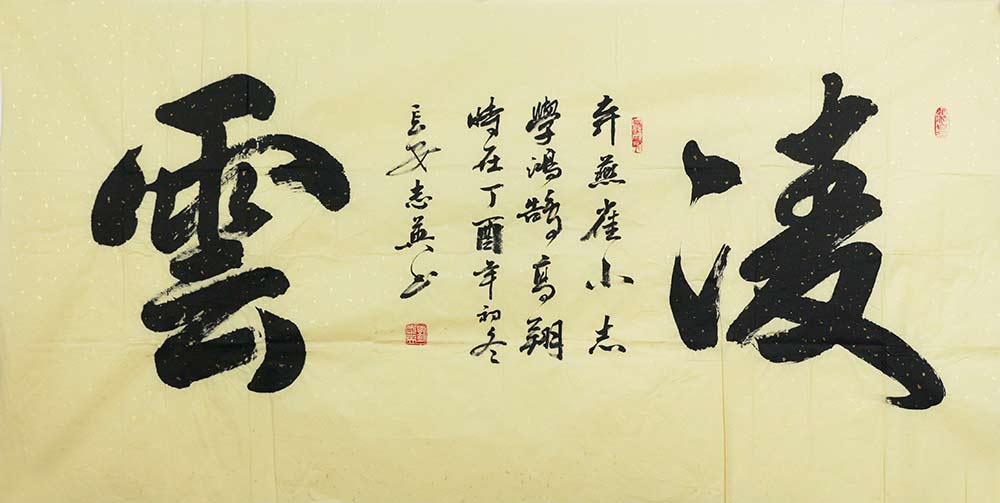 凌
弃燕雀小志
學鴻鵠高翔
時在丁酉年初冬
长安志英书
雲